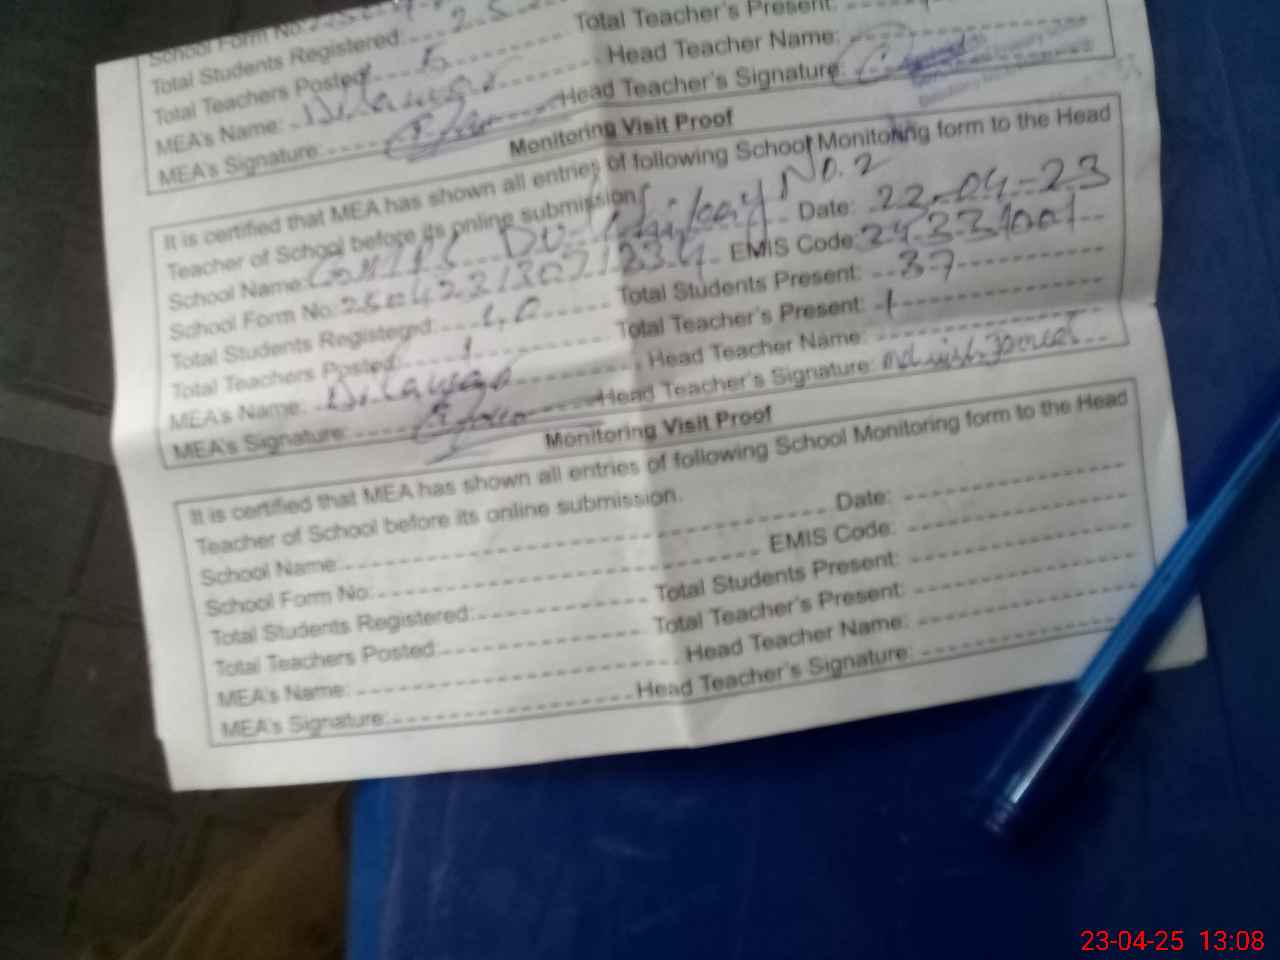 School Form No:
Total Students Registered: 25
Total Teacher's Present:
Total Teachers Posted: 5
Head Teacher Name:
MEA's Name: Dilawar
Head Teacher's Signature:
MEA's Signature:
Monitoring Visit Proof
It is certified that MEA has shown all entries of following School Monitoring form to the Head
Teacher of School before its online submission
School Name: No. 2 Date: 22-04-23
School Form No: EMIS Code:
Total Students Registered: Total Students Present: 37
Total Teachers Posted: 1 Total Teacher's Present: 1
MEA's Name: Dilawar Head Teacher Name:
MEA's Signature: Head Teacher's Signature:
Monitoring Visit Proof
It is certified that MEA has shown all entries of following School Monitoring form to the Head
Teacher of School before its online submission.
School Name: Date:
School Form No: EMIS Code:
Total Students Registered: Total Students Present:
Total Teachers Posted: Total Teacher's Present:
MEA's Name: Head Teacher Name:
MEA's Signature: Head Teacher's Signature:
23-04-25 13:08